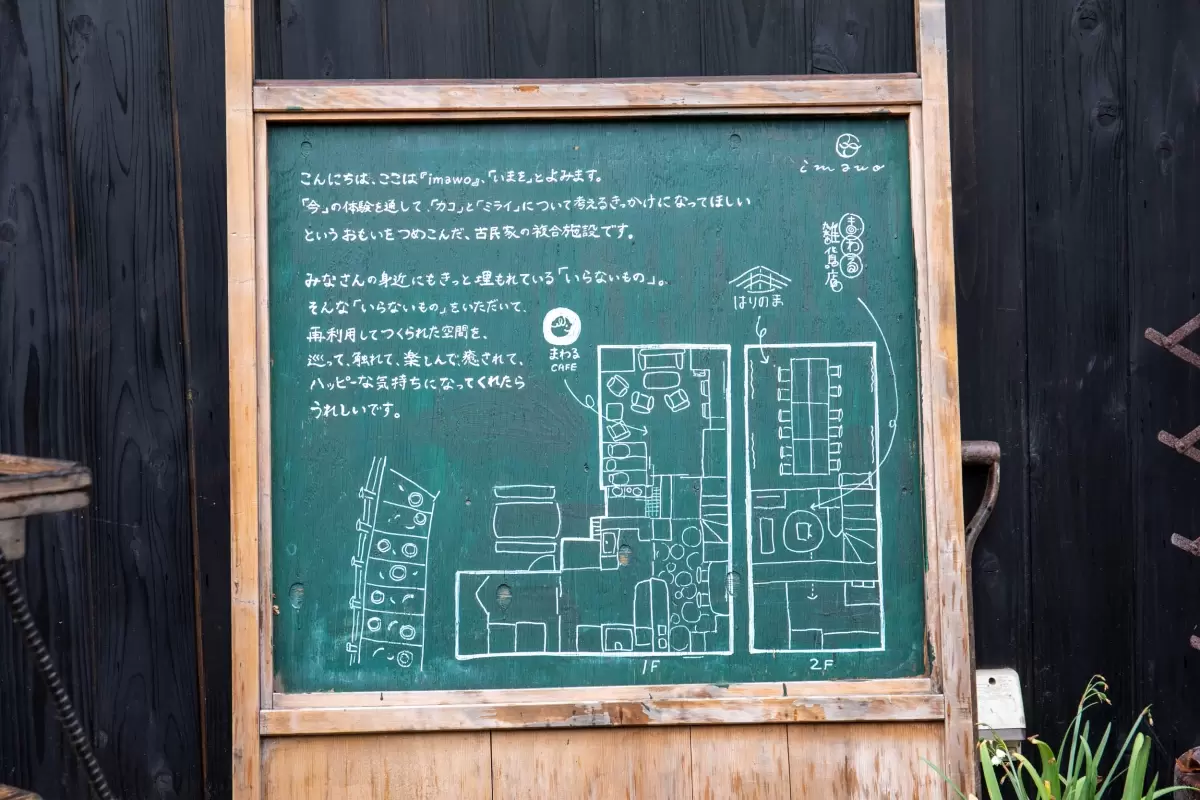 imawo
こんにちは、ここは『imawo』、「いまを」とよみます。
「今」の体験を通して、「カコ」と「ミライ」について考えるきっかけになってほしい
というおもいをつめこんだ、古民家の複合施設です。
みなさんの身近にもきっと埋もれている「いらないもの」。
そんな「いらないもの」をいただいて、
再利用してつくられた空間を、
巡って、触れて、楽しんで、癒されて、
ハッピーな気持ちになってくれたら
うれしいです。
まわる
雑貨店
はりのま
まわる
CAFE
1F
2F